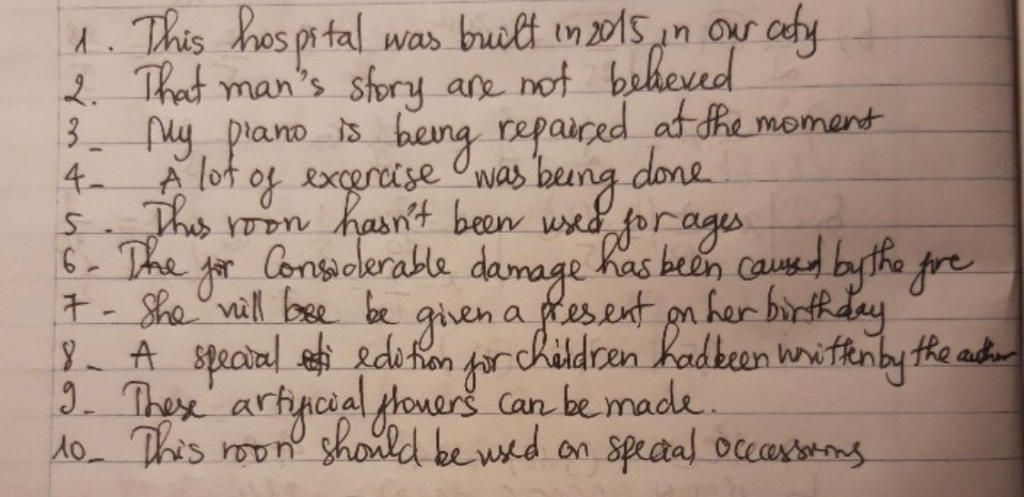 1. This hospital was built in 2015 in our city
2. That man's story are not believed
3_ My piano is being repaired at the moment
4_ A lot of excercise was being done
5. This roon hasn't been used for ages
6_ The for Considerable damage has been caused by the fire
7_ She will bee be given a present on her birthday
8_ A special edition for children had been written by the author
9_ These artificial flowers can be made.
10_ This roon should be used on special occessions